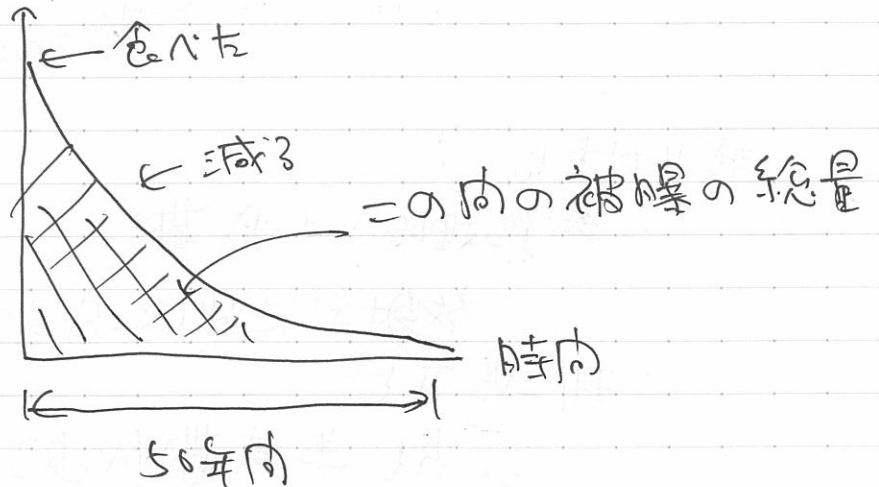 食べた
減る
この間の被曝の総量
時間
50年間